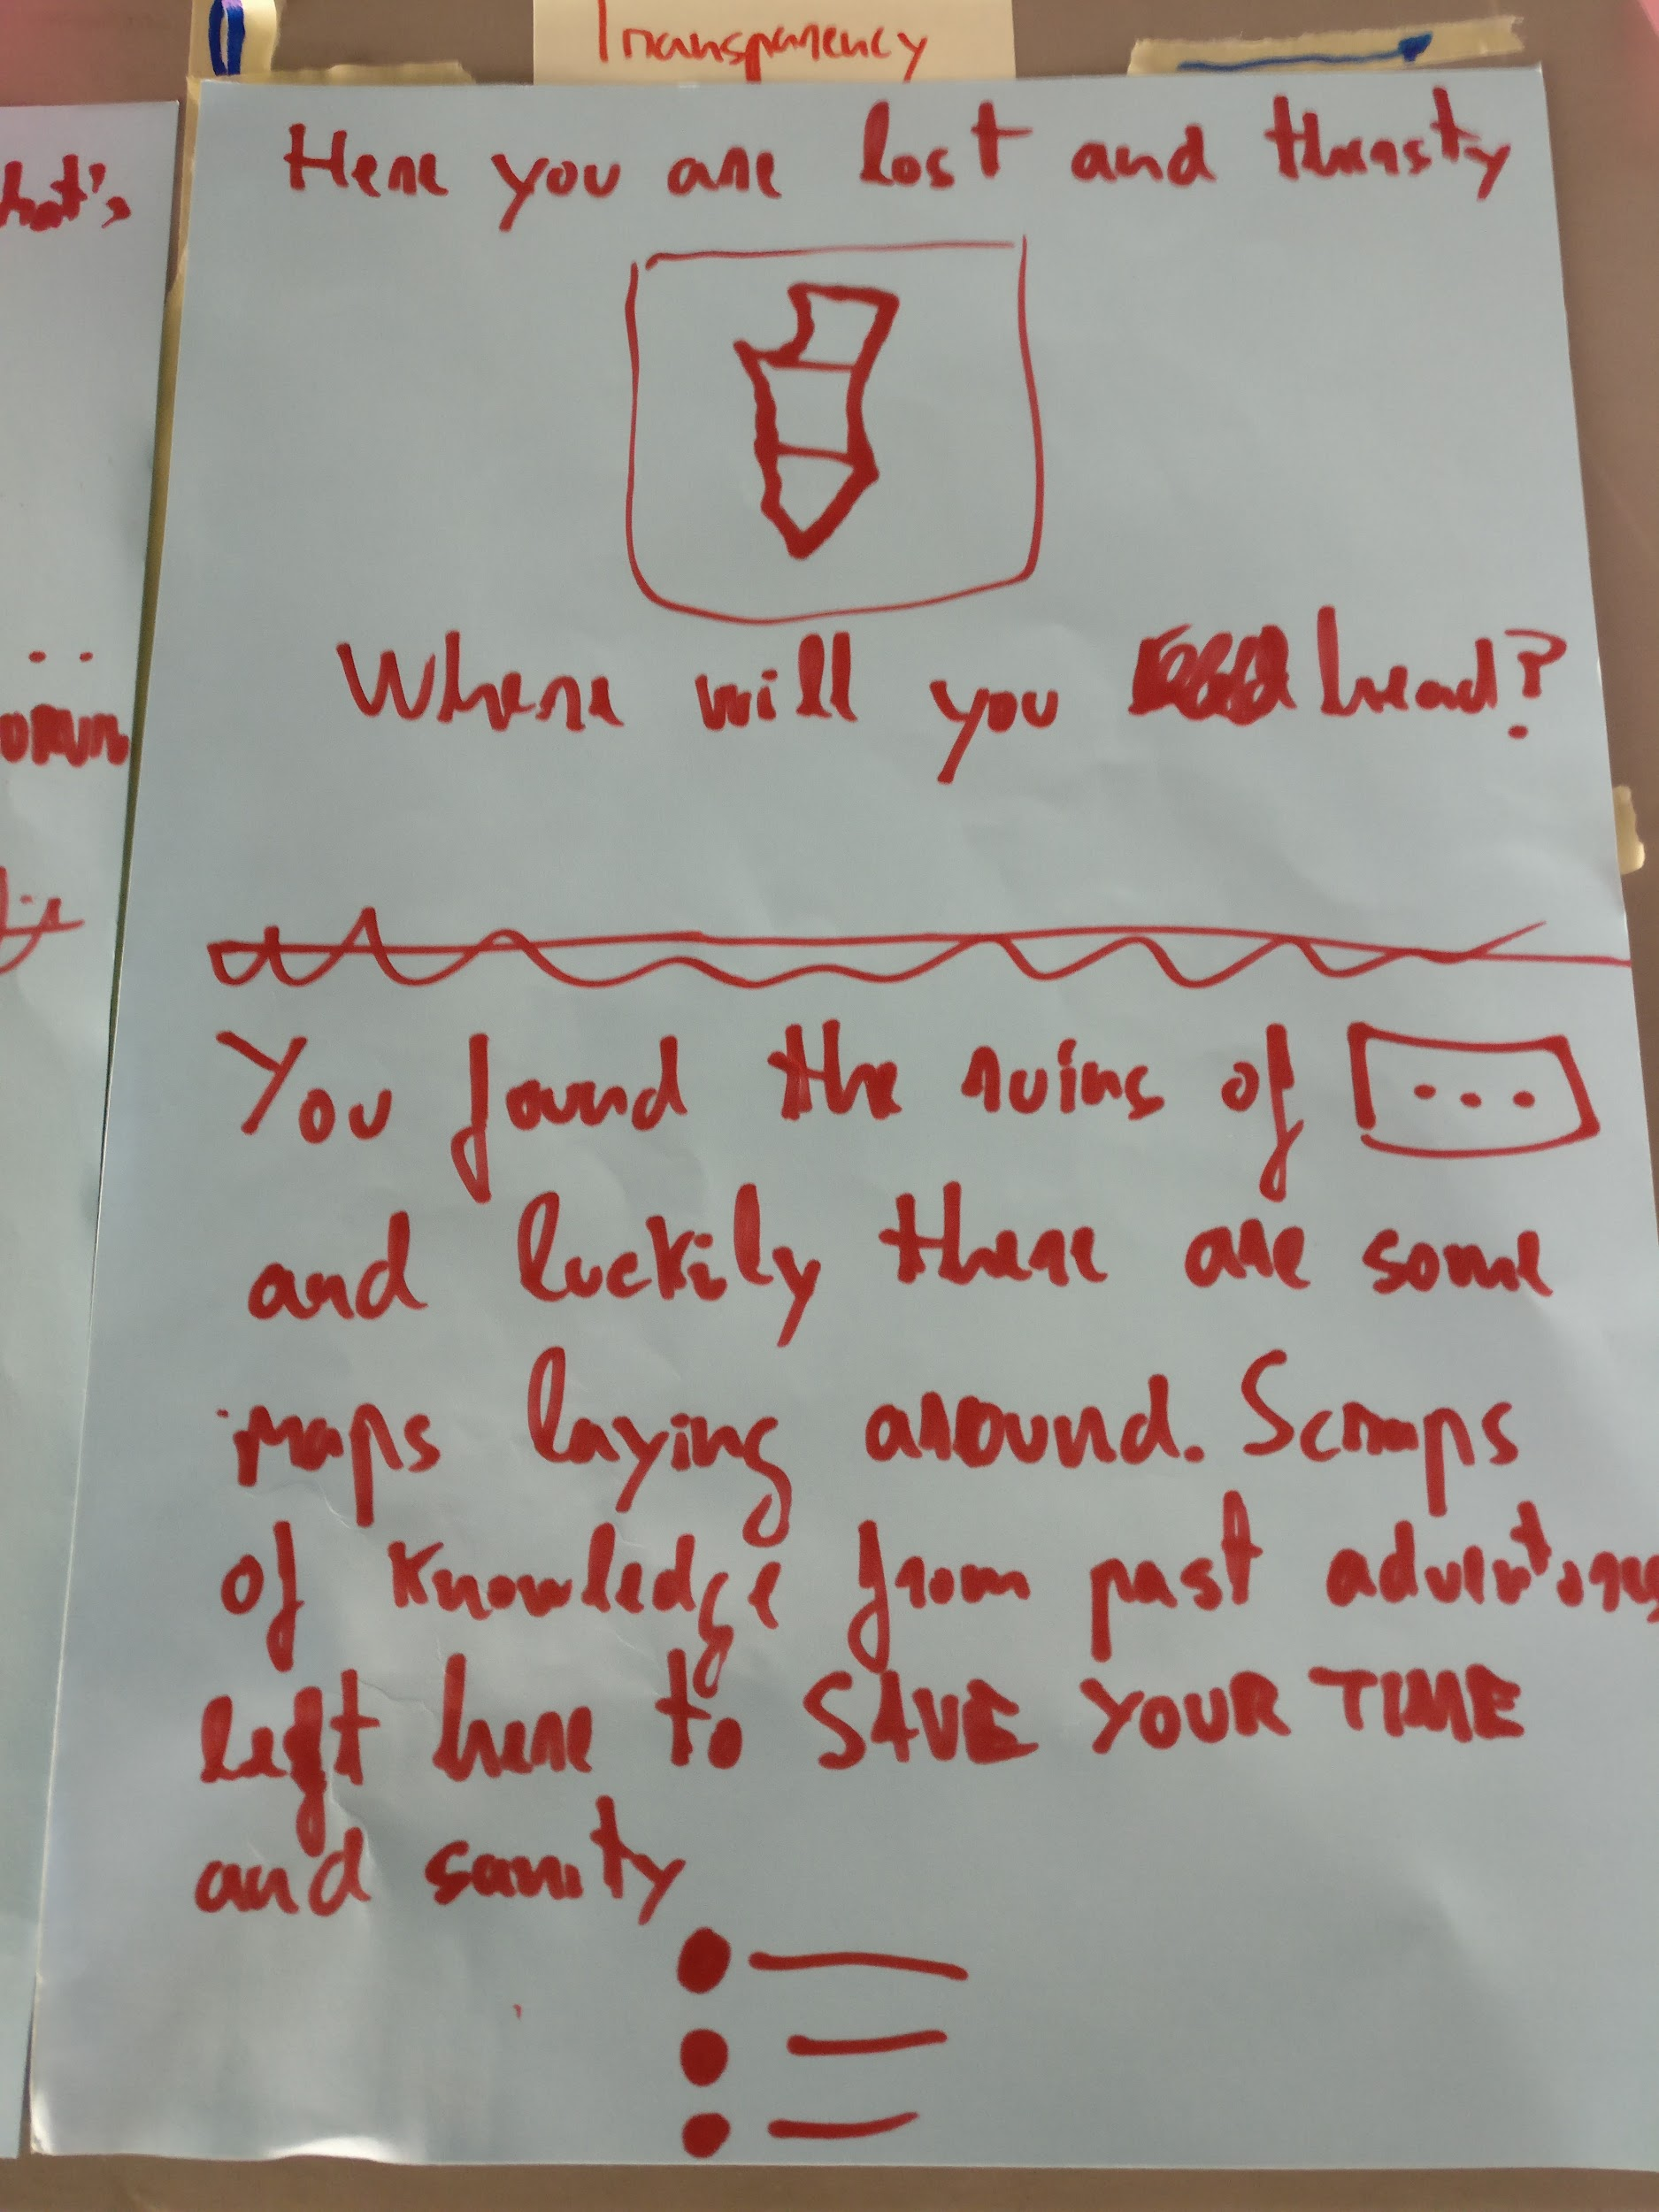 Transparency
Here you are lost and thirsty
Where will you head?
You found the ruins of ...
and luckily there are some
maps laying around. Scraps
of knowledge from past
left here to SAVE YOUR TIME
and sanity